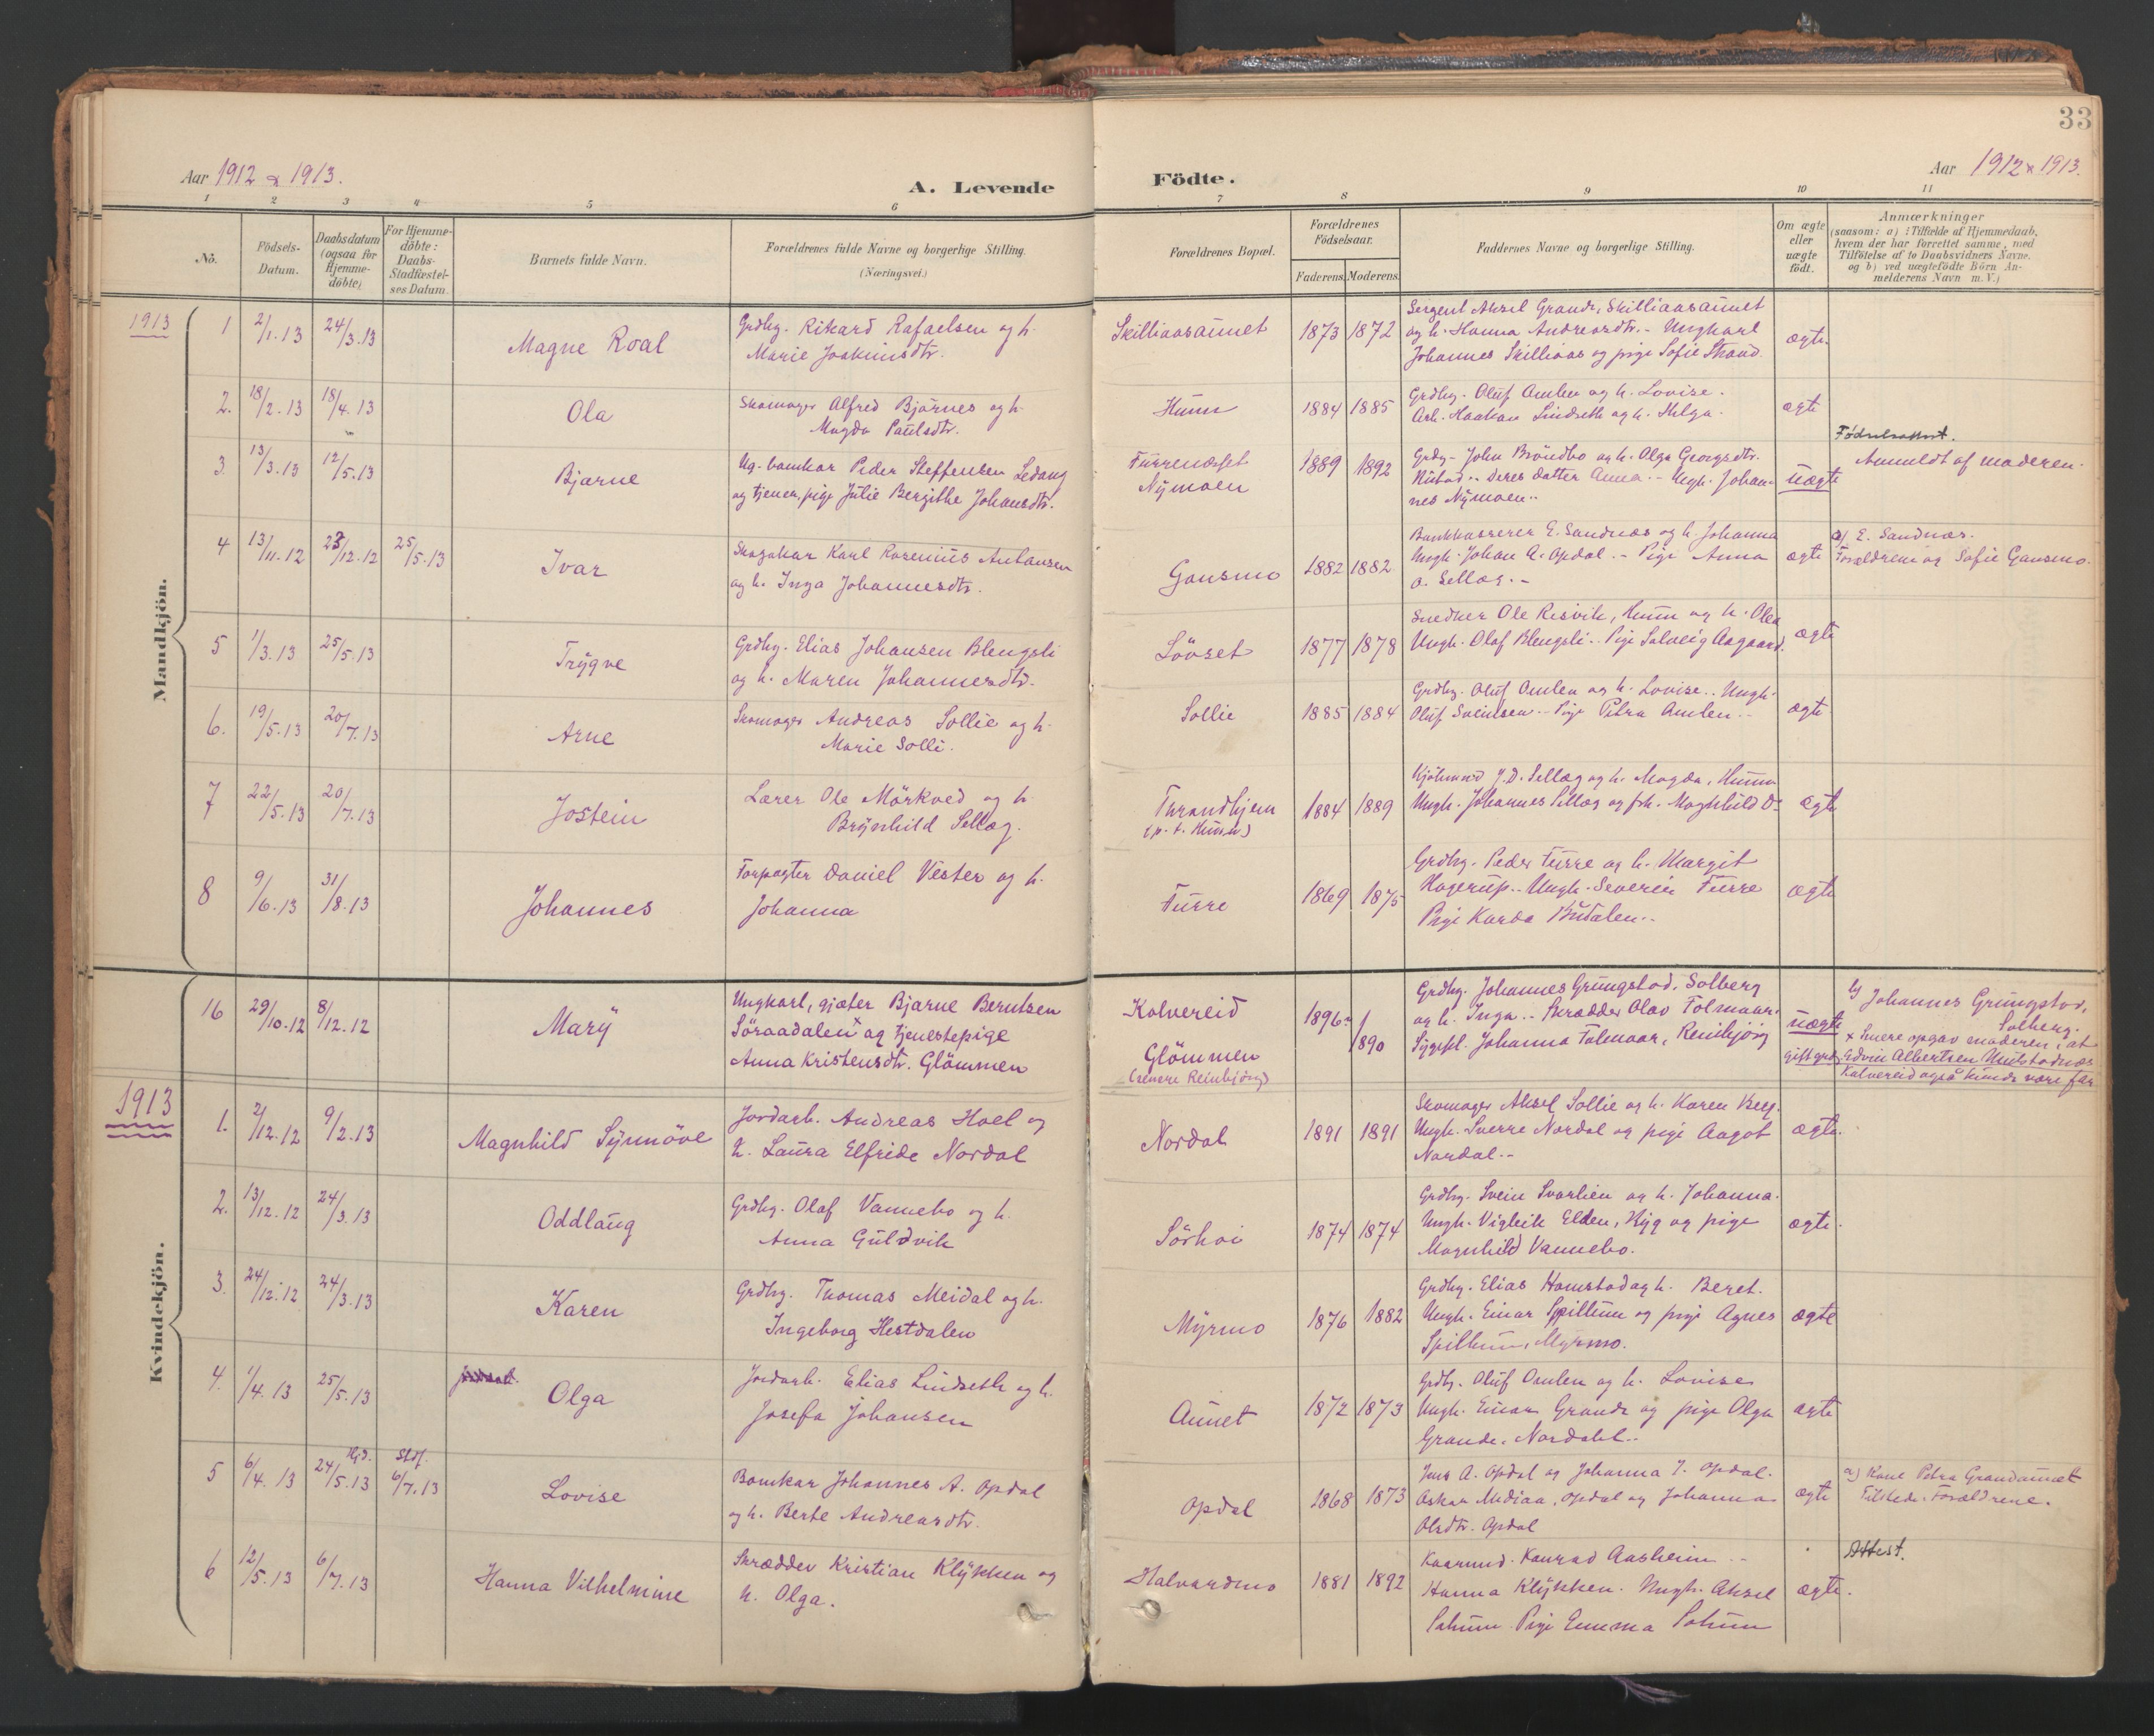 33
Aar 1912 & 1913.
A. Levende
Födte.
Aar 1912 & 1913.
1 2 3 4 5 6 7 8 9 10 11
No.
Födsels-
Datum.
Daabsdatum
(ogsaa for
Hjemme-
döbte)
For Hjemme-
döbte:
Daabs-
Stadfæstel-
ses Datum.
Barnets fulde Navn.
Forældrenes fulde Navne og borgerlige Stilling.
(Næringsvei.)
Forældrenes Bopæl.
Forældrenes
Födselsaar.
Faderens. Moderens.
Faddernes Navne og borgerlige Stilling.
Om ægte
eller
uægte
födt.
Anmærkninger
(saasom: a) i Tilfælde af Hjemmedaab,
hvem der har forrettet samme, med
Tilföielse af to Daabsvidners Navne.
og b) ved uægtefödte Börn An-
melderens Navn m. V.)
Mandkjön.
1913
1 2/1.13 24/3.13
Magne Roal
Grdbg. Rikard Rafaelsen og h.
Marie Joakimsdtr.
Skilliaasaunet
1873 1872
Sergent Aksel Grande, Skilliaasaunet
og h. Hanna Andreasdtr. - Ungkarl
Johannes Skilliaas og pige Sofie Strand.
ægte.
2. 18/2.13 18/4.13
Ola
Skomager Alfred Bjørnes og h.
Magda Paulsdtr.
Hunn
1884 1885
Grdbg. Oluf Amlen og h. Lovise.
Arb. Haakan Lindseth og h. Helga.
ægte
3. 13/3.13 12/5.13
Bjarne
Ug. bomkar Peder Steffensen Ledang
og tjener, pige Julie Bergithe Johansdtr.
Furrenesset
Nymoen
1889 1892
Grdbg. John Bröndbo og h. Olga Georgsdtr.
deres datter Anna. - Ungk. Johan-
nes Nymoen..
uægte
Födselsattest.
Anmeldt af moderen.
4 13/11.12 23/12.12 25/5.13
Ivar
Skogskar Karl Rorenius Antonsen
og h. Inga Johannesdtr.
Gansmo
1882 1882
Bankkasserer E. Sandnæs og h. Johanna
Ungk. Johan A. Opdal. - Pige Anna
O. Sellæg. -
ægte
a) E. Sandnæs.
Forældrene og Sofie Gansmo.
5 1/3.13 25/5.13
Trygve
Grdbg. Elias Johansen Blengsli
og h. Maren Johannesdtr.
Lövset
1877 1878
Snedker Ole Resvik, Hunn og h. Olea
Ungk. Olaf Blengsli.. Pige Solveig Aagaard.
ægte
6. 19/5.13 20/7.13
Arne
Skomager Andreas Sollie og h.
Marie Solli.
Sollie
1885 1884
Grdbg. Oluf Amlen og h. Lovise.. Ungk.
Oluf Sveinsen.. Pige Petra Amlen..
ægte.
7 22/5.13 20/7.13
Jostein
Lærer Ole Mörkved og h.
Brynhild Sellæg.
Trondhjem
(p. t. Hunn)
1884 1889
Kjöbmand J.D. Sellæg og h. Magda, Hunn
Ungk. Johannes Sellæg og frk. Maghhild Do
ægte
8 9/6.13 31/8.13
Johannes
Forpagter Daniel Vester og h.
Johanna
Furre
1869 1875
Grdbg. Peder Furre og h. Margit
Hagerup.. Ungk. Severin Furre
Pige Karda Budalen..
ægte
Kvindekjön.
16 29/10.12 8/12.12
Mary
Ungkarl, gjæter Bjarne Berntsen
Söraadalen x og tjenestepige
Anna Kristensdtr. Glömmen
Kolvereid
Glömmen
(senere Reinbjörg)
1896. 1890
Grdbg. Johannes Grungstad, Solberg
og h. Inga.. Skrædder Olav Tolmaar.
Sygepl. Johanna Tolmaar, Reinbjörg
uægte
b) Johannes Grungstad,
Solberg.
x Senere opgav moderen, at
Edvin Albertsen
Kolvereid også kunde være far
1913
1. 2/12.12 9/2.13
Magnhild Synnöve
Jordarb. Andreas Hoel og
h. Laura Elfride Nordal
Nordal
1891 1891
Skomager Aksel Sollie og h. Karen Berg.
Ungk. Sverre Nordal og pige Aagot
Nordal.-
ægte.
2. 13/12.12 24/3.13
Oddlaug
Grdbg. Olaf Vannebo og h.
Anna Guldvik
Sörhoi
1874 1874
Grdbg. Svein Svarlien og h. Johanna.
Ungk. Vigleik Elden, Hyg og pige
Magnhild Vannebo.
ægte.
3. 24/12.12 24/3.13
Karen
Grdbg. Thomas Meidal og h.
Ingeborg Hestdalen
Myrmo
1876 1882
Grdbg. Elias Homstad og h. Beret.
Ungk. Einar Spillum og pige Agnes
Spillum, Myrmo.
ægte
4. 1/4.13 25/5.13
Olga
Jordarb. Elias Lindseth og h.
Josefa Johansen
Aunet
1872 1873
Grdbg. Oluf Amlen og h. Lovise
Ungk. Einar Grande og pige Olga
Grande, Nordahl..
ægte
5 6/4.13 Hjd. 24/5.13 Stdf. 6/7.13
Lovise
Bomkar Johannes A. Opdal
og h. Berte Andreasdtr.
Opdal
1868 1873
Jens A. Opdal og Johanna J. Opdal.
Oskar Mediaa, Opdal og Johanna
Olsdtr. Opdal
ægte
a) Kone Petra Grandaunet
Tilstede: Forældrene.
6 12/5.13 6/7.13
Hanna Vilhelmine
Skrædder Kristian Klykken og
h. Olga.
Halvardmo
1881 1892
Konrad Aasheim ..
Hanna Klykken. Ungk. Aksel
Salum. Pige Emma Salum
ægte.
Attest.